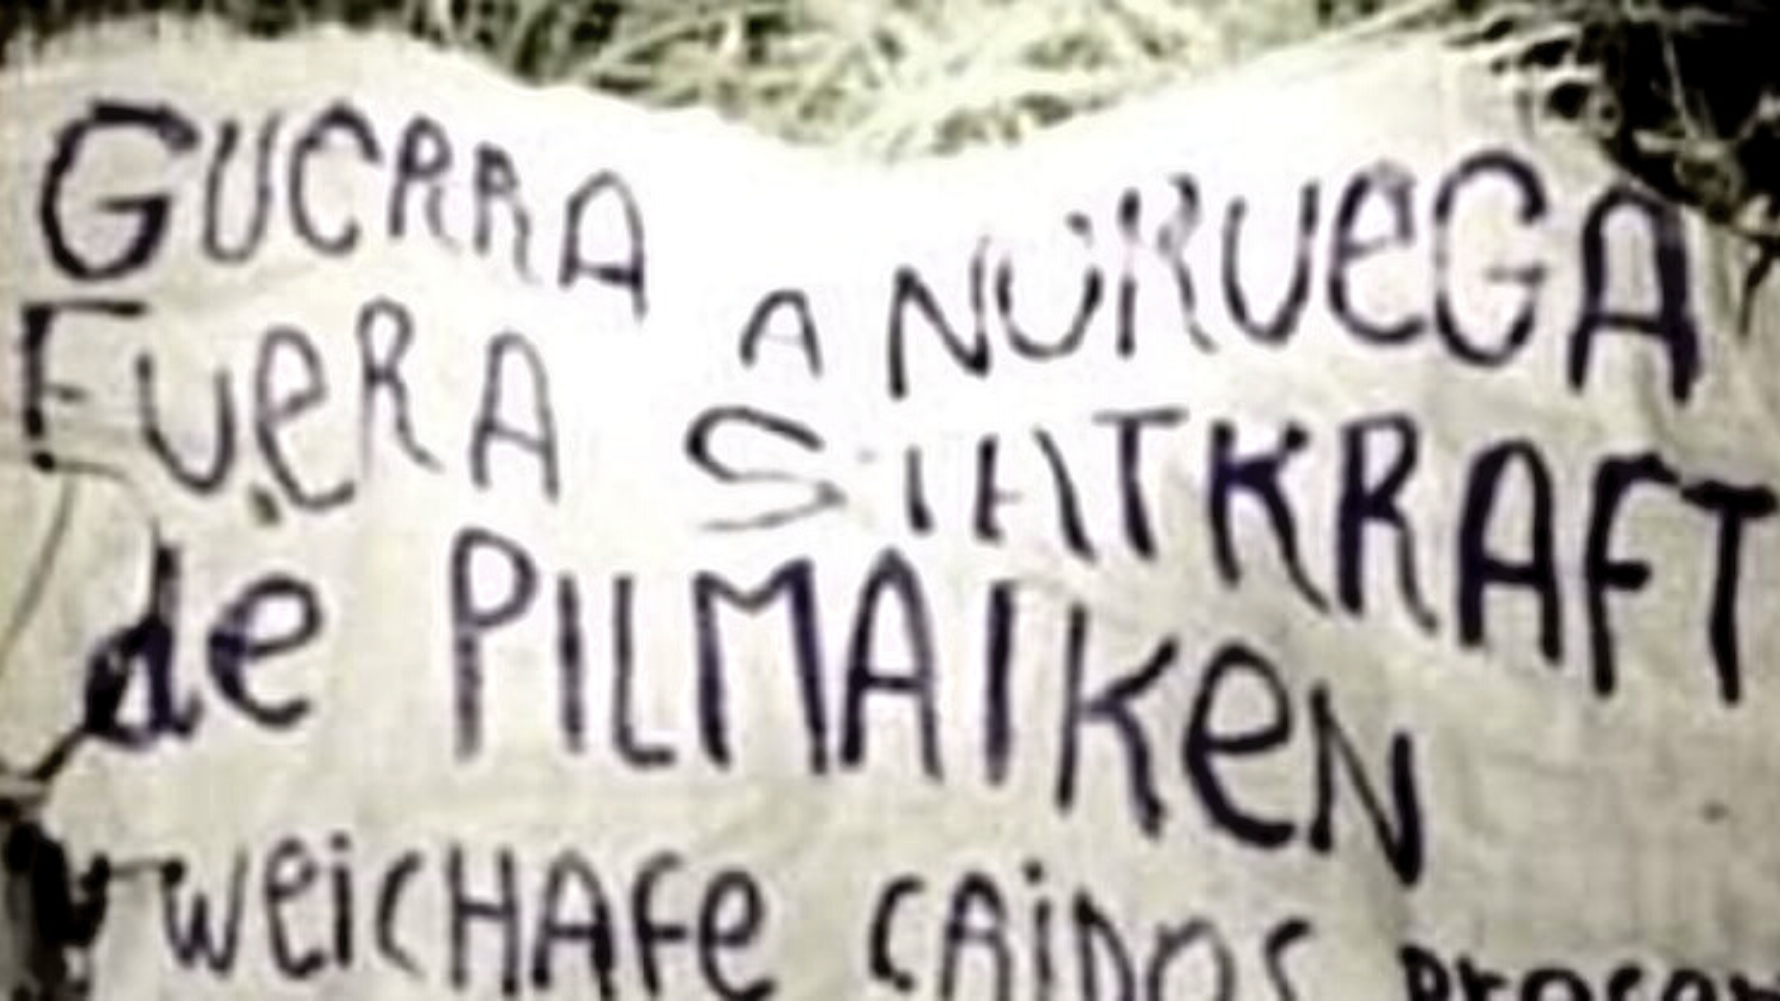 GUERRA A NORUEGA
FUeRA STATKRAFT
de PILMAIKeN
weiCHAFe CAiDOS